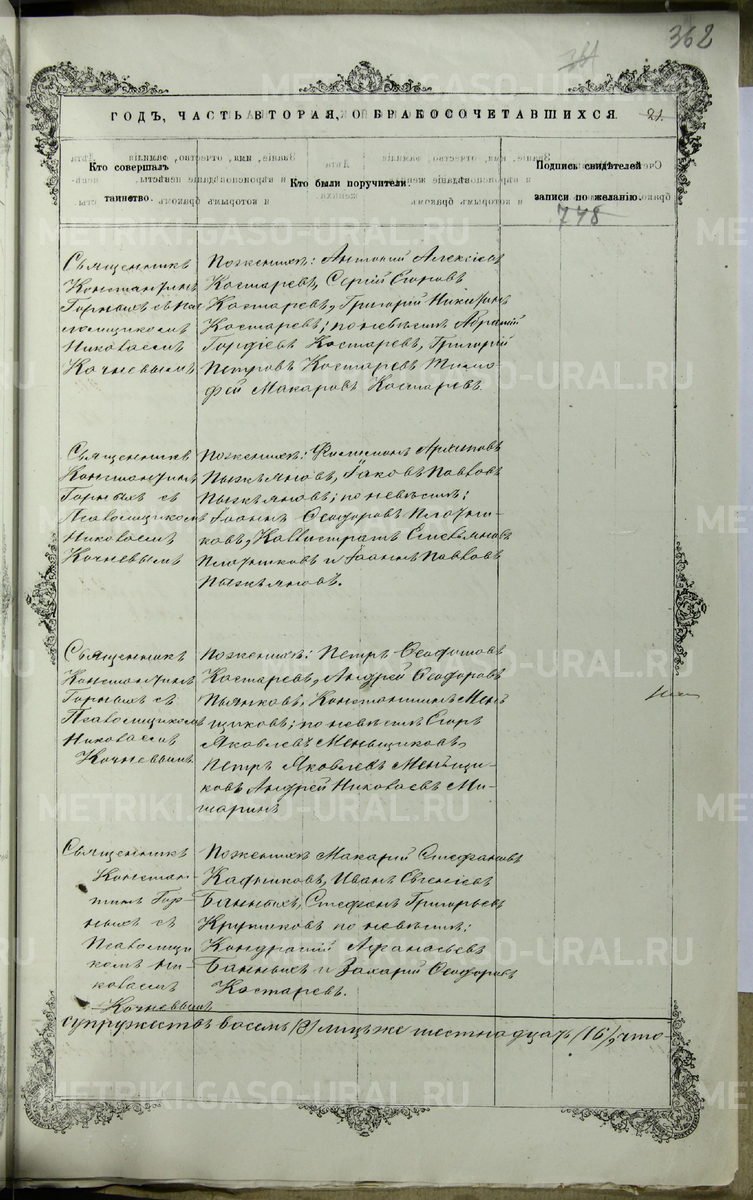 362
ГОДЪ, ЧАСТЬ ВТОРАЯ, О БРАКОСОЧЕТАВШИХСЯ.
21.
Кто совершалъ таинство.
Кто были поручители.
Подпись свидѣтелей записи по желанію.
778
Священникъ
Константинъ
Горныхъ съ Пса-
ломщикомъ
Николаемъ
Кочневымъ
По женихѣ: Антоній Алексѣевъ
Костаревъ, Сергій Егоровъ
Костаревъ, Григорій Никитинъ
Костаревъ; по невѣстѣ Абрамій
Гордѣевъ Костаревъ, Григорій
Петровъ Костаревъ Тимо-
фей Макаровъ Костаревъ.
Священникъ
Константинъ
Горныхъ съ
Псаломщикомъ
Николаемъ
Кочневымъ
По женихѣ: Филимонъ Архиповъ
Пыжьяновъ, Іаковъ Павловъ
Пыжьяновъ; по невѣстѣ:
Іоаннъ Ѳеодоровъ Плотни-
ковъ, Каллистратъ
Плотниковъ и Іоаннъ Павловъ
Пыжьяновъ.
Священникъ
Константинъ
Горныхъ съ
Псаломщикомъ
Николаемъ
Кочневымъ
По женихѣ: Петръ
Костаревъ, Андрей Ѳеодоровъ
Пьянковъ, Константинъ Мень
щиковъ; по невѣстѣ Егоръ
Яковлевъ Меньщиковъ,
Петръ Яковлевъ Меньщи-
ковъ Андрей Николаевъ Ми-
шаринъ
Священникъ
Констан-
тинъ Гор-
ныхъ съ
Псаломщи
комъ Ни-
колаемъ
Кочневымъ
По женихѣ Макарій Стефановъ
Кадчиковъ, Иванъ Евгеніевъ
Банныхъ, Стефанъ Григорьевъ
по невѣстѣ:
Кондратій Афанасьевъ
Банныхъ и Захарій Ѳеодоровъ
Костаревъ.
супружествъ восемь /8/ лицъ же шестнадцать /16/, что-
METRIKI.GASO-URAL.RU